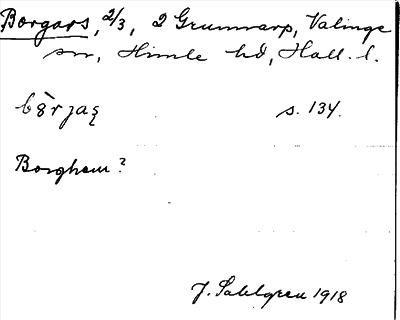 Borgars, 2/3, 2 Grumvarp, Valinge
sn, Himle hd, Hall. l.
s. 134.
Borghem?
J. Sahlgren 1918